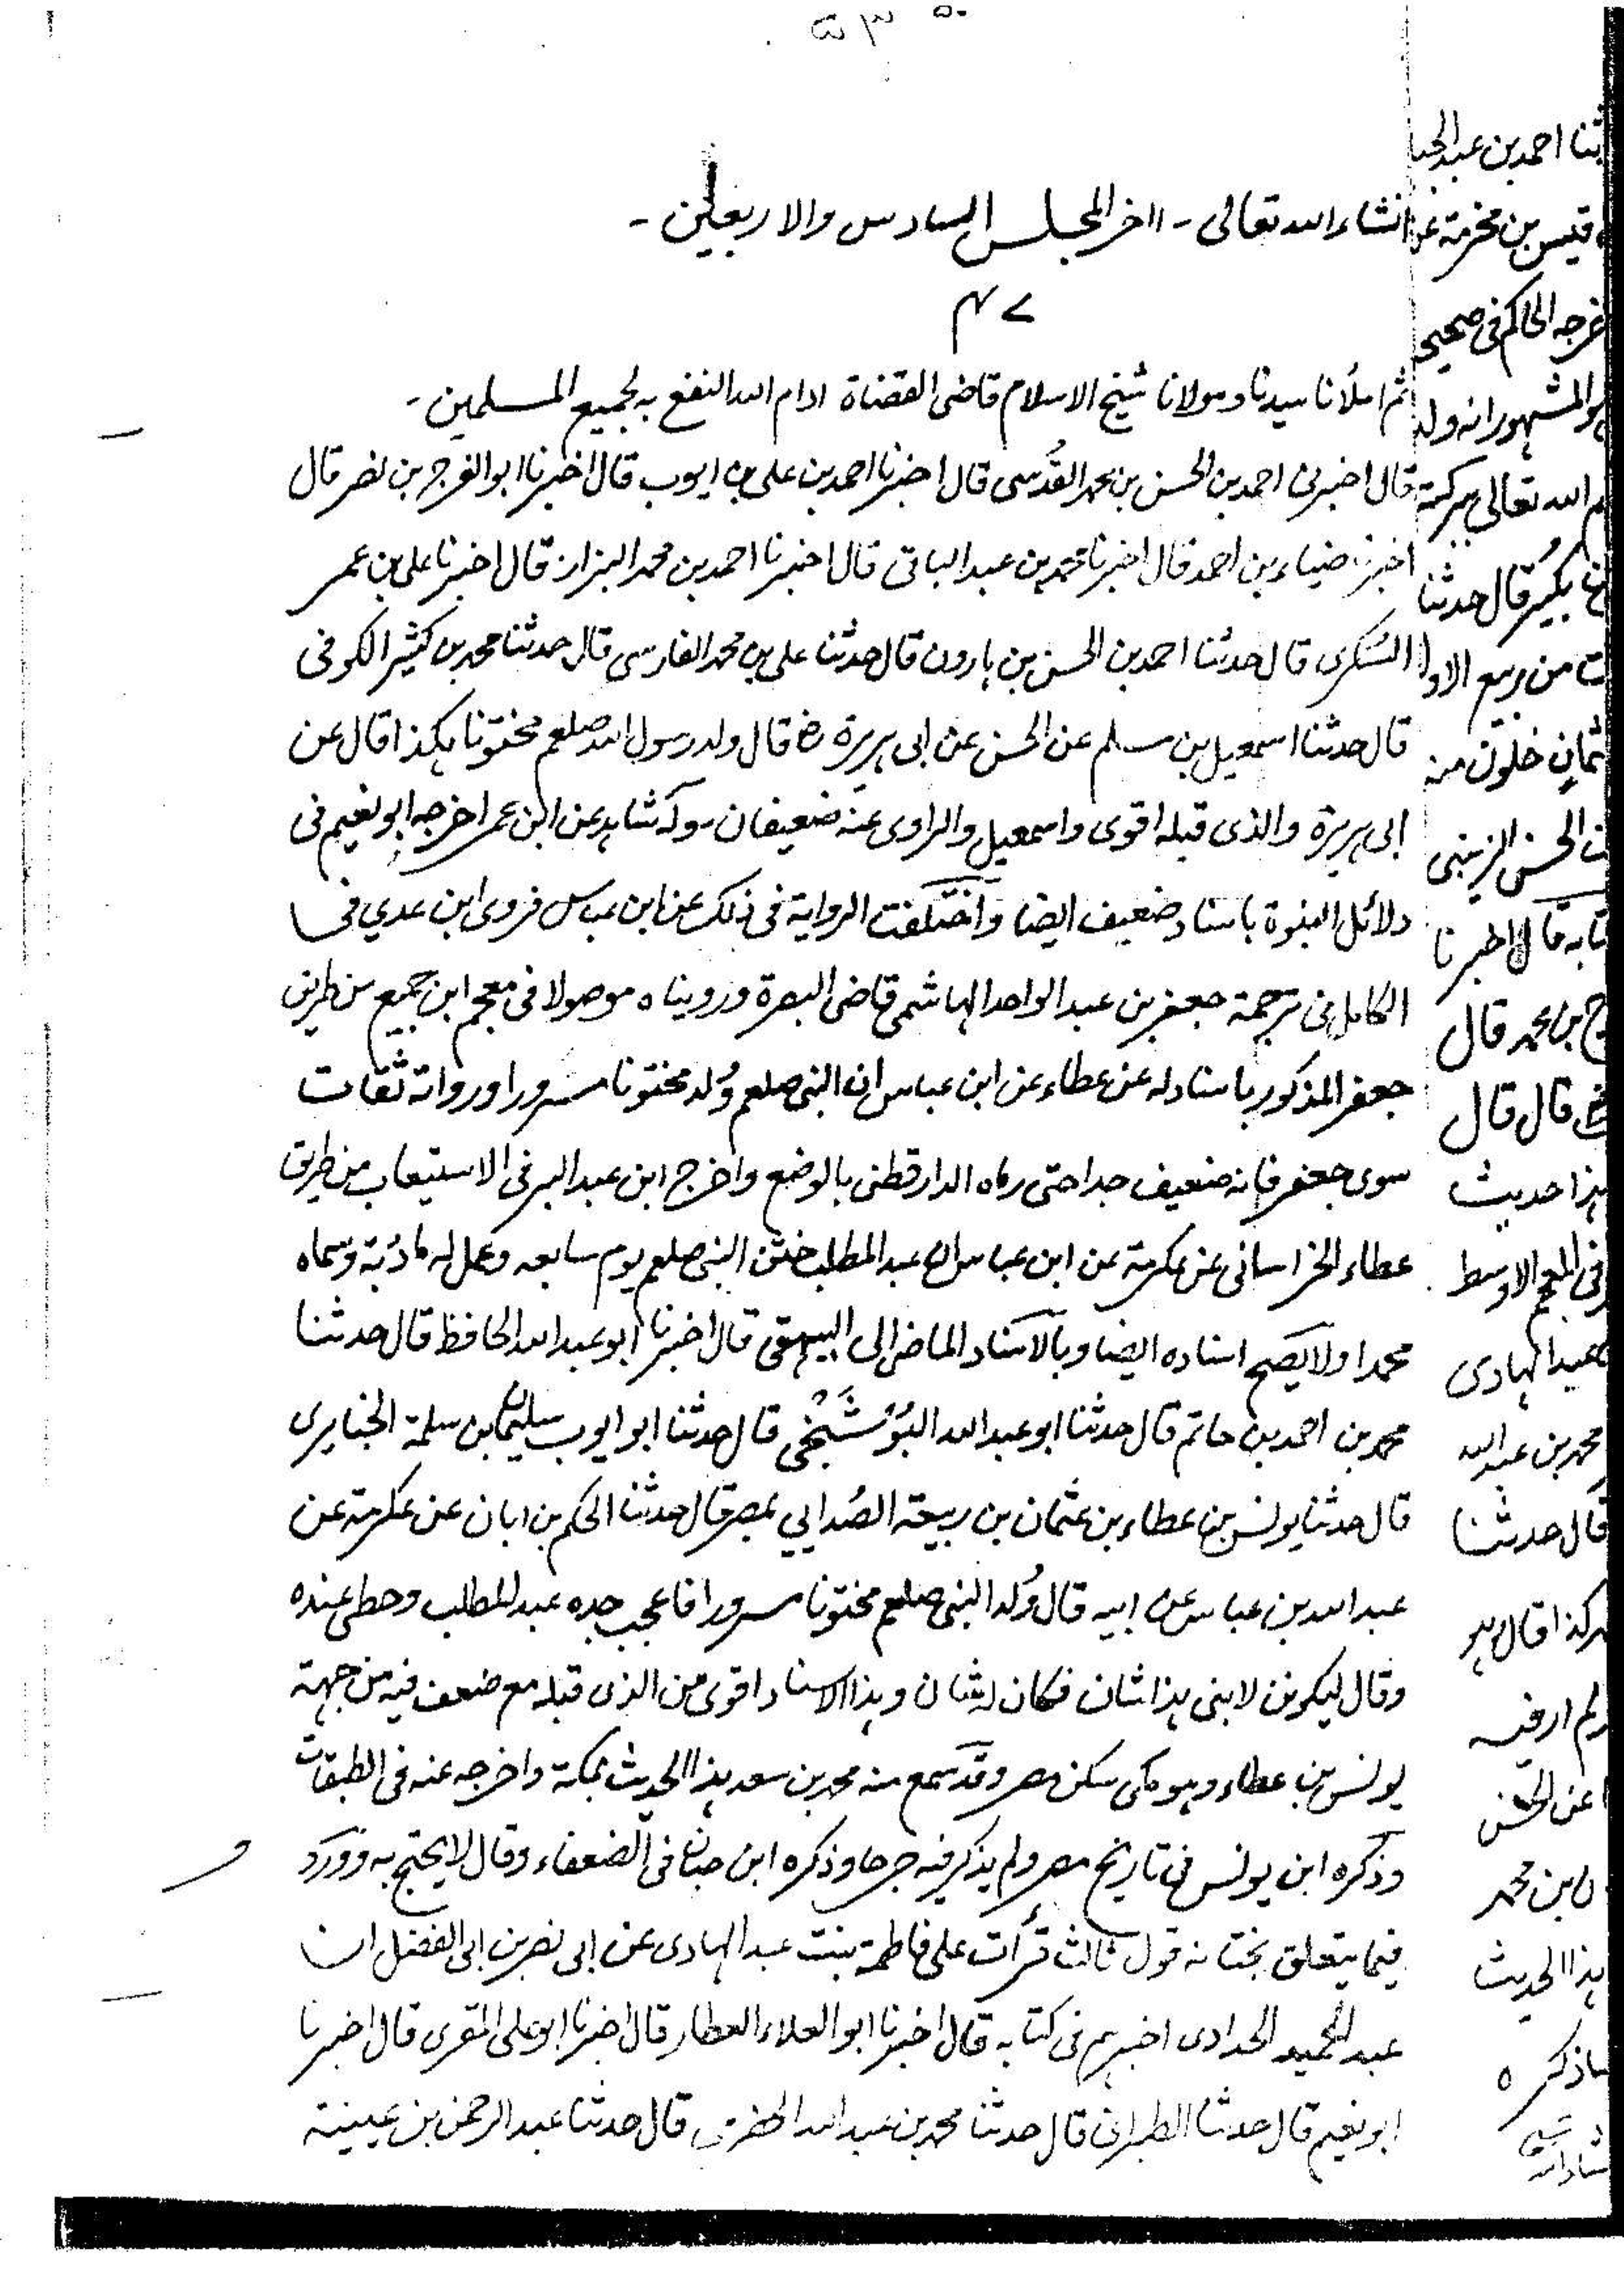 ۵۳۵
انشاء الله تعالى - اخر المجلس السادس والاربعين -
۴۷
ثم املأنا سيدنا ومولانا شيخ الاسلام قاضى القضاة ادام الله النفع به لجميع المسلمين -
قال اخبرنى احمد بن الحسن بن محمد القُدسى قال اخبرنا احمد بن على بن ايوب قال اخبرنا ابو الفرج بن نصر قال
اخبرنا ضياء بن احمد قال اخبرنا محمد بن عبد الباقى قال اخبرنا احمد بن محمد البزار قال اخبرنا على بن عمر
السُكرى قال حدثنا احمد بن الحسن بن هارون قال حدثنا على بن محمد الفارسى قال حدثنا محمد بن كثير الكوفى
قال حدثنا اسمعيل بن مسلم عن الحسن عن ابى هريرة رض قال ولد رسول الله صلعم مختونا هكذا قال عن
ابى هريرة والذى قبله اقوى واسمعيل والراوى عنه ضعيفان وله شاهد عن ابن عمر اخرجه ابو نعيم فى
دلائل النبوة باسناد ضعيف ايضا واختلفت الرواية فى ذلك عن ابن عباس فروى ابن عدي فى
الكامل فى ترجمة جعفر بن عبد الواحد الهاشمى قاضى البصرة ورويناه موصولا فى معجم ابن جميع من طريق
جعفر المذكور باسناد له عن عطاء عن ابن عباس ان النبى صلعم وُلد مختونا مسرورا ورواته ثقات
سوى جعفر فانه ضعيف جدا حتى رماه الدارقطنى بالوضع واخرج ابن عبد البر فى الاستيعاب من طريق
عطاء الخراسانى عن عكرمة عن ابن عباس ان عبد المطلب ختن النبى صلعم يوم سابعه وعمل له مادُبة وسماه
محمدا ولا يصح اسناده ايضا وبالاسناد الماضى الى البيهقى قال اخبرنا ابو عبد الله الحافظ قال حدثنا
محمد بن احمد بن حاتم قال حدثنا ابو عبد الله البُوشَنْجى قال حدثنا ابو ايوب سليمان بن سلمة الخبايرى
قال حدثنا يونس بن عطاء بن عثمان بن ربيعة الصُدايي بمصر قال حدثنا الحكم بن ابان عن عكرمة عن
عبد الله بن عباس عن ابيه قال وُلد النبى صلعم مختونا مسرورا فاعجب جده عبد المطلب وحظى عنده
وقال ليكونن لابنى هذا شان فكان له شان وهذا الاسناد اقوى من الذى قبله مع ضعف فيه من جهة
يونس بن عطاء وهو مكى سكن مصر وقد سمع منه محمد بن سعد هذا الحديث بمكة واخرجه عنه فى الطبقات
وذكره ابن يونس فى تاريخ مصر ولم يذكر فيه جرحا وذكره ابن حبان فى الضعفاء وقال لا يحتج به وورد
فيما يتعلق بختانه قول ثالث قرأت على فاطمة بنت عبد الهادى عن ابى نصر بن ابى الفضل ان
عبد الحميد الحدادى اخبرهم فى كتابه قال اخبرنا ابو العلاء العطار قال اخبرنا ابو على المقرى قال اخبرنا
ابو نعيم قال حدثنا الطبرانى قال حدثنا محمد بن عبد الله الحضرمى قال حدثنا عبد الرحمن بن عيينة
ثنا احمد بن عبد الجبا
قيس بن مخرمة عن
خرجه الحاكم فى صحيحه
هو المشهور انه ولد
م الله تعالى ببركته
بكير قال حدثنا
ت من ربيع الاول
ثمان خلون منه
ت الحسن الزينبى
تابه قال اخبرنا
ج بن محمد قال
قال قال
هذا حديث
فى المعجم الاوسط
عبد الهادى
محمد بن عبد الله
قال حدثنا
هكذا قال هو
ولم ار فيه
عن الحسن
ن بن محمد
هذا الحديث
ماذكره